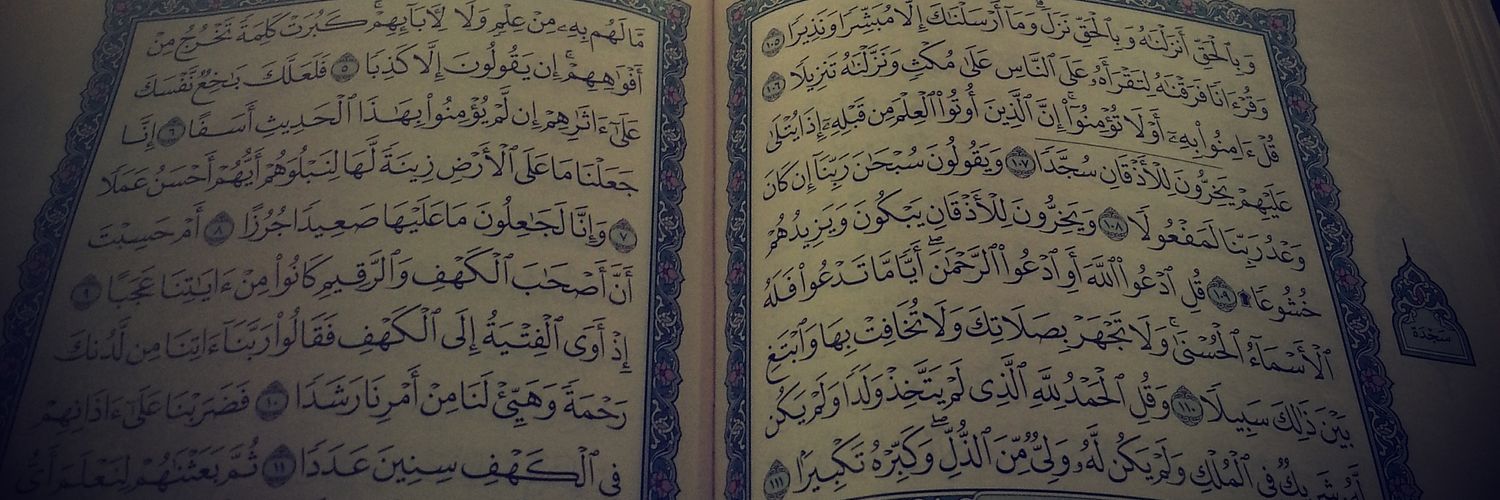 وَبِٱلۡحَقِّ أَنزَلۡنَٰهُ وَبِٱلۡحَقِّ نَزَلَۗ وَمَآ أَرۡسَلۡنَٰكَ إِلَّا مُبَشِّرٗا وَنَذِيرٗا ١٠٥
وَقُرۡءَانٗا فَرَقۡنَٰهُ لِتَقۡرَأَهُۥ عَلَى ٱلنَّاسِ عَلَىٰ مُكۡثٖ وَنَزَّلۡنَٰهُ تَنزِيلٗا ١٠٦
قُلۡ ءَامِنُواْ بِهِۦٓ أَوۡ لَا تُؤۡمِنُوٓاْۚ إِنَّ ٱلَّذِينَ أُوتُواْ ٱلۡعِلۡمَ مِن قَبۡلِهِۦٓ إِذَا يُتۡلَىٰ
عَلَيۡهِمۡ يَخِرُّونَۤ لِلۡأَذۡقَانِۤ سُجَّدٗاۤ ١٠٧ وَيَقُولُونَ سُبۡحَٰنَ رَبِّنَآ إِن كَانَ
وَعۡدُ رَبِّنَا لَمَفۡعُولٗا ١٠٨ وَيَخِرُّونَ لِلۡأَذۡقَانِ يَبۡكُونَ وَيَزِيدُهُمۡ
خُشُوعٗا۩ ١٠٩ قُلِ ٱدۡعُواْ ٱللَّهَ أَوِ ٱدۡعُواْ ٱلرَّحۡمَٰنَۖ أَيّٗا مَّا تَدۡعُواْ فَلَهُ
ٱلۡأَسۡمَآءُ ٱلۡحُسۡنَىٰۚ وَلَا تَجۡهَرۡ بِصَلَاتِكَ وَلَا تُخَافِتۡ بِهَا وَٱبۡتَغِ
بَيۡنَ ذَٰلِكَ سَبِيلٗا ١١٠ وَقُلِ ٱلۡحَمۡدُ لِلَّهِ ٱلَّذِي لَمۡ يَتَّخِذۡ وَلَدٗا وَلَمۡ يَكُن
لَّهُۥ شَرِيكٞ فِي ٱلۡمُلۡكِ وَلَمۡ يَكُن لَّهُۥ وَلِيّٞ مِّنَ ٱلذُّلِّۖ وَكَبِّرۡهُ تَكۡبِيرَۢا ١١١
سَجۡدَة
مَّا لَهُم بِهِۦ مِنۡ عِلۡمٖ وَلَا لِأٓبَآئِهِمۡۚ كَبُرَتۡ كَلِمَةٗ تَخۡرُجُ مِنۡ
أَفۡوَٰهِهِمۡۚ إِن يَقُولُونَ إِلَّا كَذِبٗا ٥ فَلَعَلَّكَ بَٰخِعٞ نَّفۡسَكَ
عَلَىٰٓ ءَاثَٰرِهِمۡ إِن لَّمۡ يُؤۡمِنُواْ بِهَٰذَا ٱلۡحَدِيثِ أَسَفًا ٦ إِنَّا
جَعَلۡنَا مَا عَلَى ٱلۡأَرۡضِ زِينَةٗ لَّهَا لِنَبۡلُوَهُمۡ أَيُّهُمۡ أَحۡسَنُ عَمَلٗا
٧ وَإِنَّا لَجَٰعِلُونَ مَا عَلَيۡهَا صَعِيدٗا جُرُزًا ٨ أَمۡ حَسِبۡتَ
أَنَّ أَصۡحَٰبَ ٱلۡكَهۡفِ وَٱلرَّقِيمِ كَانُواْ مِنۡ ءَايَٰتِنَا عَجَبًا ٩
إِذۡ أَوَى ٱلۡفِتۡيَةُ إِلَى ٱلۡكَهۡفِ فَقَالُواْ رَبَّنَآ ءَاتِنَا مِن لَّدُنكَ
رَحۡمَةٗ وَهَيِّئۡ لَنَا مِنۡ أَمۡرِنَا رَشَدٗا ١٠ فَضَرَبۡنَا عَلَىٰٓ ءَاذَانِهِمۡ
فِي ٱلۡكَهۡفِ سِنِينَ عَدَدٗا ١١ ثُمَّ بَعَثۡنَٰهُمۡ لِنَعۡلَمَ أَيُّ